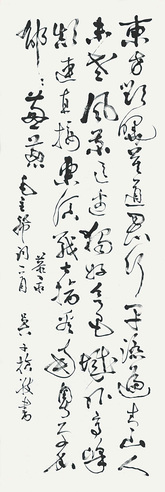 東方欲曉莫道君行早踏遍青山人
未老風景這邊獨好會昌城外高峰
顛連直接東溟戰士指看南粵更加
郁〻蔥蔥 毛主席詞一首
書